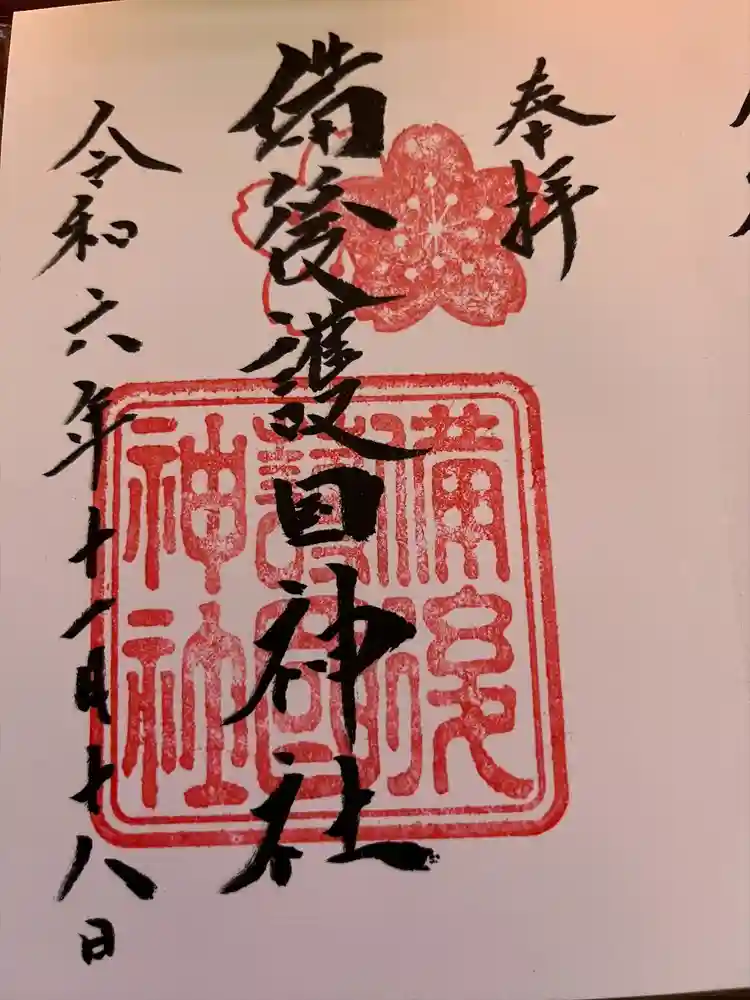 奉拝
備後護国神社
備後
護國
神社
令和六年十一月十八日